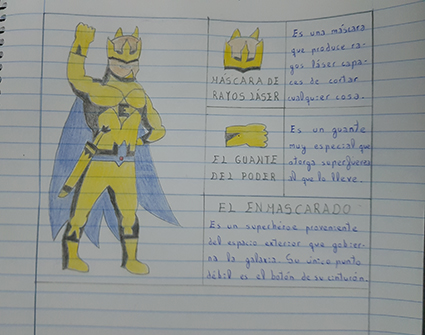 Es una máscara
que produce ra-
yos láser capa-
ces de cortar
cualquier cosa.
MÁSCARA DE
RAYOS LÁSER
Es un guante
muy especial que
otorga superfuerza
al que lo lleve.
EL GUANTE
DEL PODER
EL ENMASCARADO
Es un superhéroe proveniente
del espacio exterior que gobier-
na la galaxia. Su único punto
débil es el botón de su cinturón.